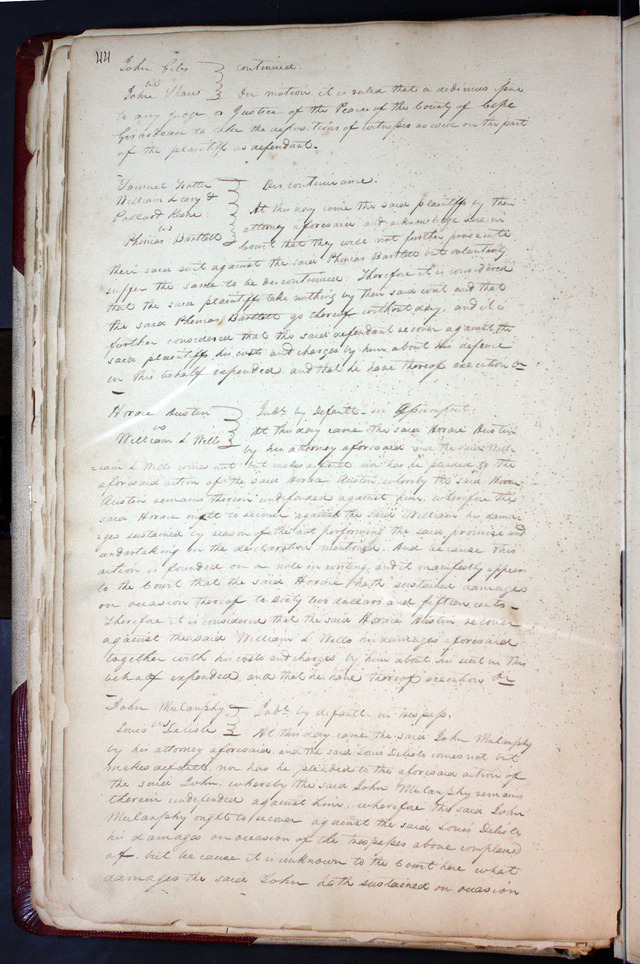 44
John Ciley } continued.
vs
John Shaw } On motion it is ruled that a dedimus issue
to any judge or Justice of the Peace of the County of Cape
Girardeau to take the depositions of witnesses as well on the part
of the plaintiff as defendant.
Samuel
William L &
vs
Phineas Bartlett } Discontinuance.
At this day came the said plaintiffs by their
attorney aforesaid and acknowledge here in
Court that they will not further prosecute
their said suit against the said Phineas Bartlett but voluntarily
suffer the same to be discontinued. Therefore it is considered
that the said plaintiffs take nothing by their said writ and that
the said Phineas Bartlett go thereof without day, and it is
further considered that the said defendant recover against the
said plaintiffs his costs and charges by him about his defence
in this behalf expended and that he have thereof execution &c
Horace Austin
vs
William L Wells } Judt. by Default in Assumpsit.
At this day came the said Horace Austin
by his attorney aforesaid and the said Will-
-iam L Wells comes not but makes default nor has he pleaded to the
aforesaid action of the said Horace Austin, whereby the said Horace
Austin remains therein undefended against him, wherefore the
said Horace ought to recover against the said William his dama-
-ges sustained by reason of the not performing the said promise and
undertaking in the declaration mentioned. And because this
action is founded on a note in writing, and it manifestly appears
to the Court that the said Horace hath sustained damages
on occasion thereof to sixty two dollars and fifteen cents -
Therefore it is considered that the said Horace Austin recover
against the said William L Wells his damages aforesaid
together with his costs and charges by him about his suit in this
behalf expended, and that he have thereof execution &c
John Mulanphy } Judt. by default - in trespass.
vs
Louis Delisle } At this day came the said John Mulanphy
by his attorney aforesaid, and the said Louis Delisle comes not but
makes default nor has he pleaded to the aforesaid action of
the said John, whereby the said John Mulanphy remains
therein undefended against him, wherefore the said John
Mulanphy ought to recover against the said Louis Delisle
his damages on occasion of the trespasses above complained
of, but because it is unknown to the Court here what
damages the said John hath sustained on occasion